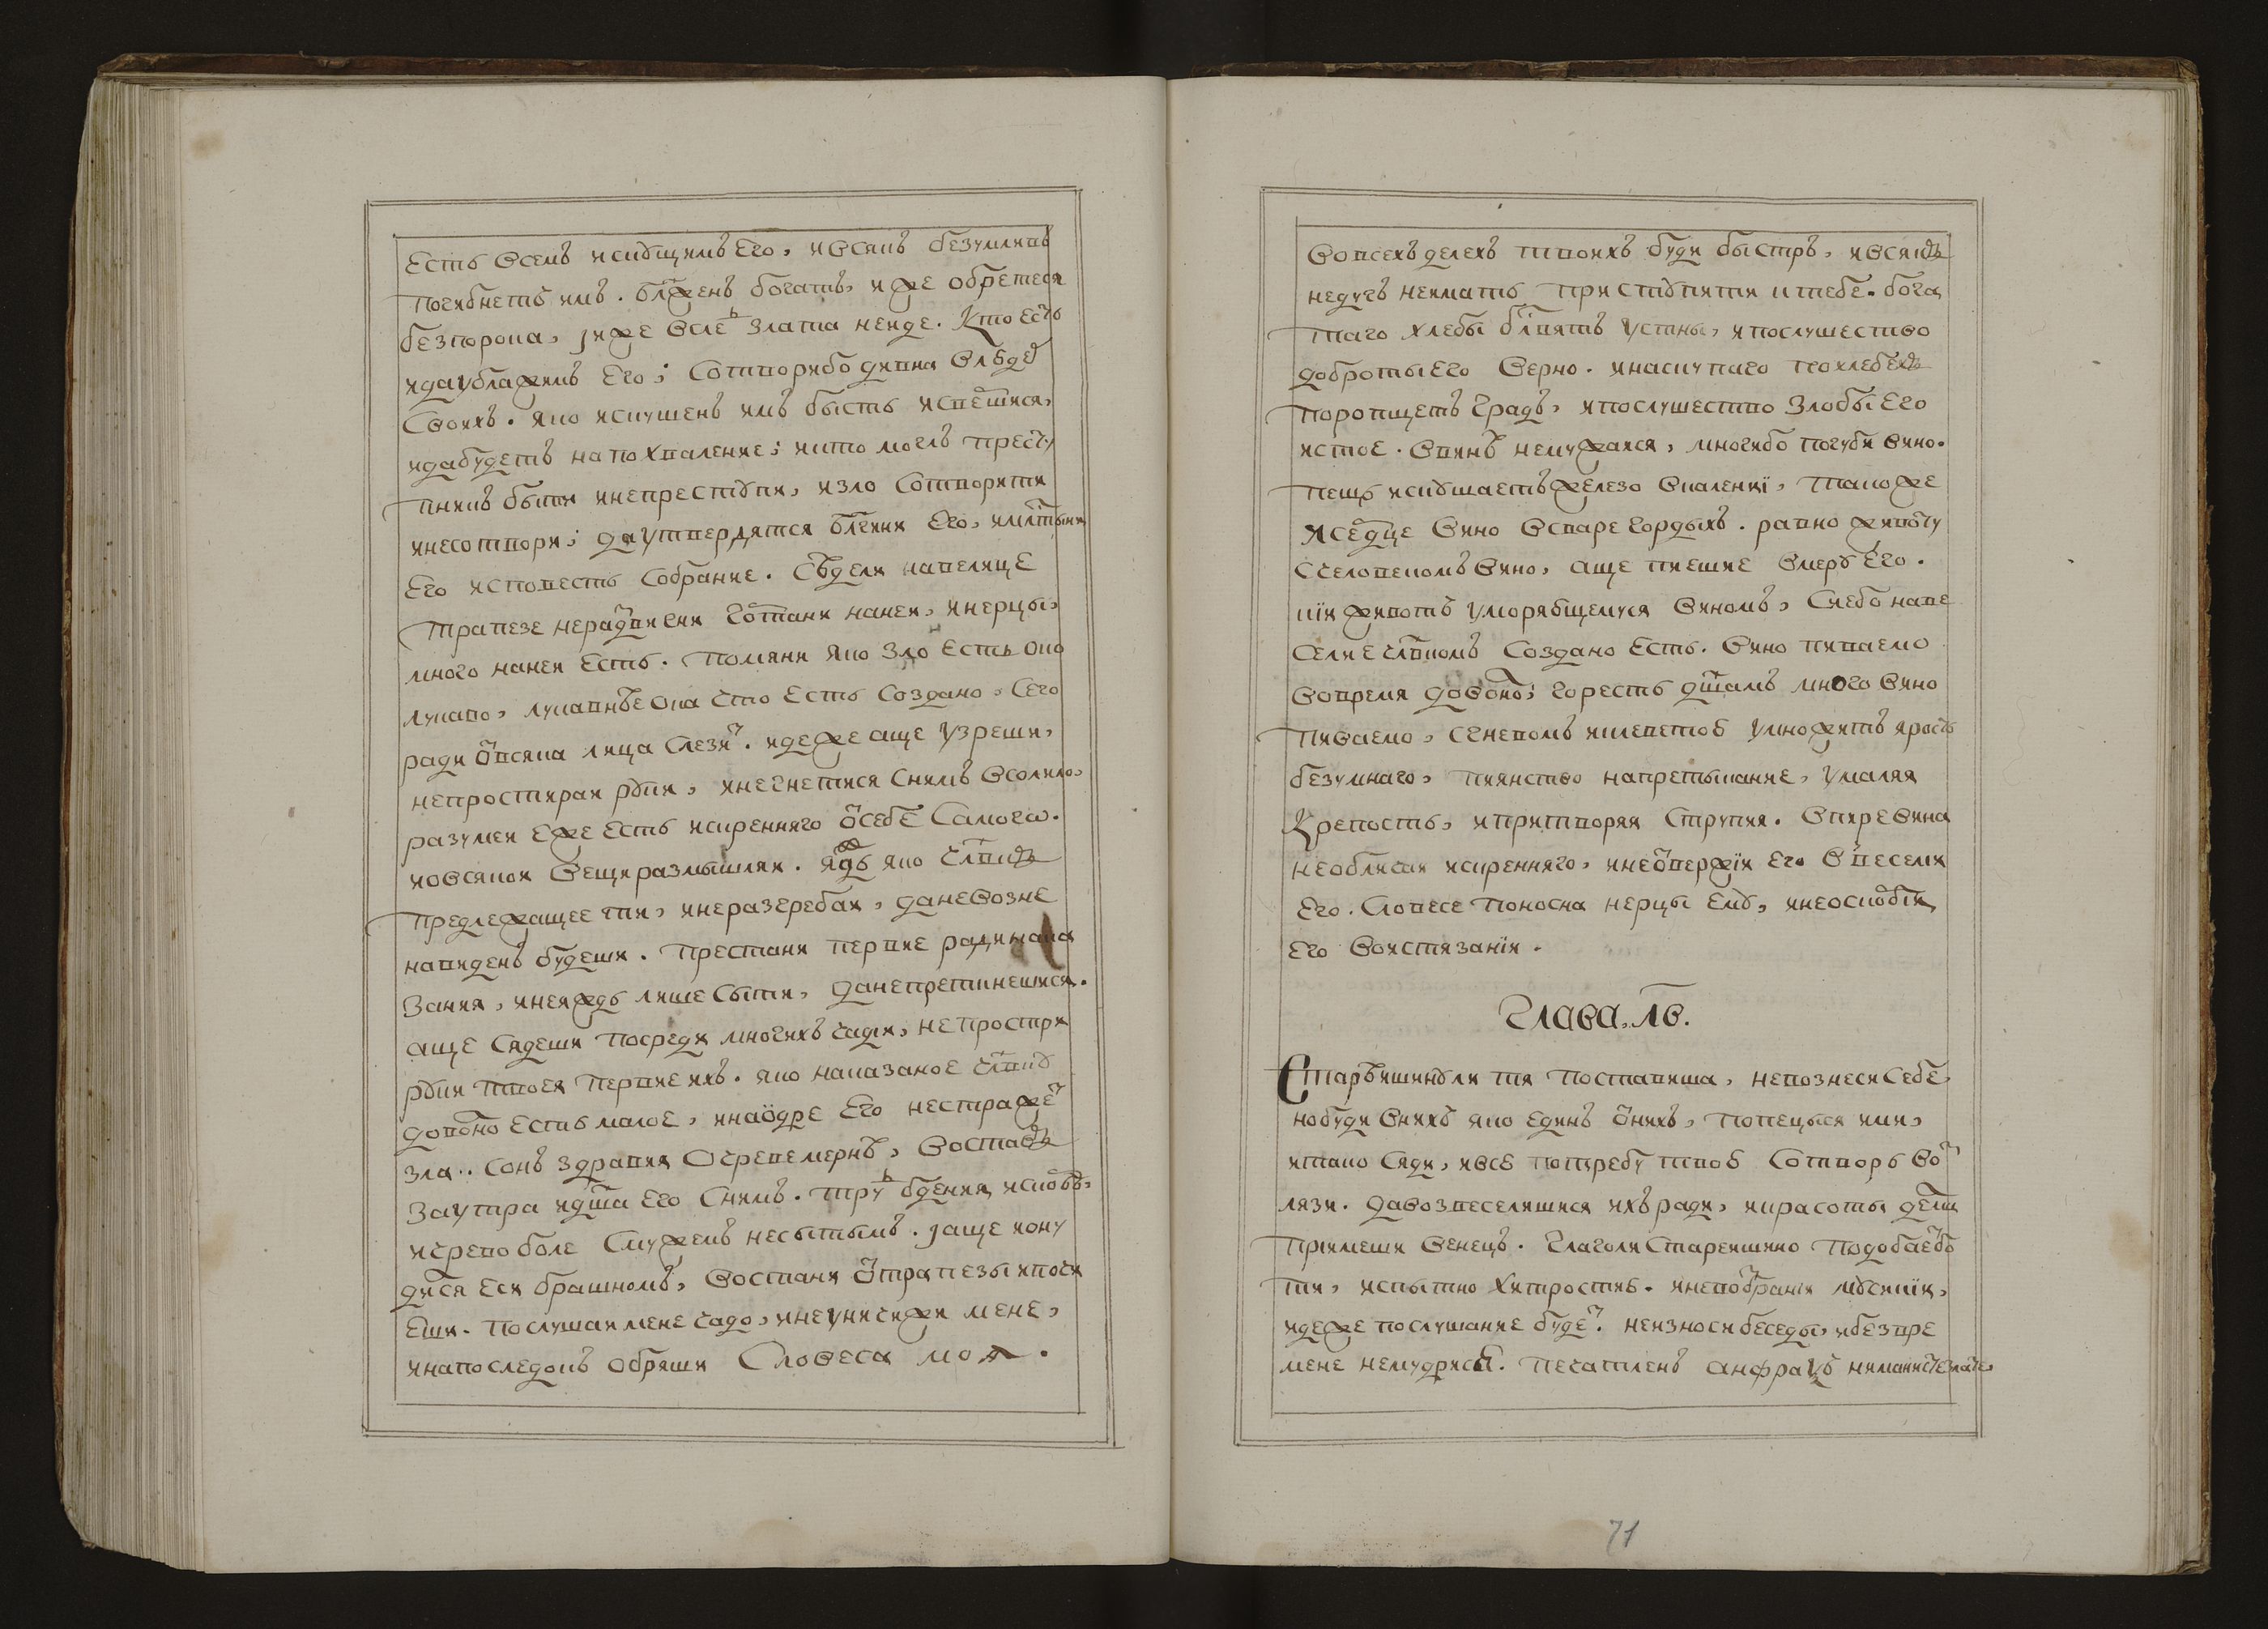 Есть всемъ искꙋщимъ Его, ивсякъ безумливъ
погибнетъ имъ. блженъ богатъ, иже обретеся
безпорока, иже всле злата неиде. Кто есть
идаублажимъ Его; Сотворибо дивна влюде
Своихъ. яко искушенъ имъ бысть исвешися,
идабудетъ напохваление; икто могъ престу
пникъ быти инепрестꙋпи, изло Сотворити
инесотвори; даутвердятся блгия Его, имлтыни
Его исповесть Собрание. Седели навелице
трапезе неразвиси гортани нанеи, инерцы,
много нанеи есть. помяни яко зло есть око
лукаво, лукавнее ока что есть Создано, Сего
ради ѿвсяка лица Слези. идеже аще узреши,
непростираи рꙋки, инегнетися Снимъ всолило,
разумеи еже есть искренняго ѿсебе Самого.
иовсякои вещи размышляи. яждь яко члвкъ
предлежащее ти, инеразгребаи, даневозне
навиденъ будеши. престани первие ради нака
зания, инеяждь лише Сыти, данепреткнешися.
аще Сядеши посреди многихъ чади, непростри
рꙋки твоея первие ихъ. яко наказаное члвкꙋ
доволно есть малое, инаодре Его нестраже
зла. Сонъ здравия очревемернъ, воставъ
заутра идша Его Снимъ. тру бдения, исковъ,
ичрево боле Смужемъ несытымъ. jаще кону
дися еси брашномъ, востани ѿтрапезы ипочи
еши. послушаи мене чадо, инеуничижи мене,
инапоследокъ обрящи Словеса моя.
вовсехъ делехъ твоихъ буди быстръ, ивсякъ
недугъ нейматъ приступити ктебе. бога
таго хлебы блвятъ устны, ипослушество
доброты его верно. инаскупаго похлебехъ
поропщетъ градъ, ипослушество злобы Его
истое. ввинѣ немужаися, многибо погуби вино.
пещь искꙋшаетъ железо вкаленнï, такоже
исердце вино всваре гордыхъ. равно животу
Счеловекомъ вино, аще пиешие вмерꙋ Его.
кiи животъ уморяющемуся виномъ, Сиебо наве
Селие члвкомъ Создано есть. вино пиваемо
вовремя доволно; горесть дшамъ много вино
пиваемо, Сгневомъ иклеветою умножитъ ярость
безумнаго, пиянство напретыкание, умаляя
Крепость, ипритворяя Струпия. впире вина
необличаи искренняго, инеѿвержiи Его ввеселии
Его. Словесе поносна нерцы емꙋ, инеоскорби
Его воистязанiи.
Глава. лв.
Старѣишинꙋли тя поставиша, невознеси Себе,
нобуди вних яко единъ ѿнихъ, попецыся ими,
итако Сяди, ивсю потребу твою Сотворь во
лязи. давозвеселишися ихъ ради, икрасоты дела
прiимеши венецъ. Глаголи Старейшино подобаебо
ти, испытно хитростию. иневозбрани мꙋсикiи,
идеже послушание буде. неизноси беседы, ибезвре
мене немудрися. печатленъ анфраѯъ
71